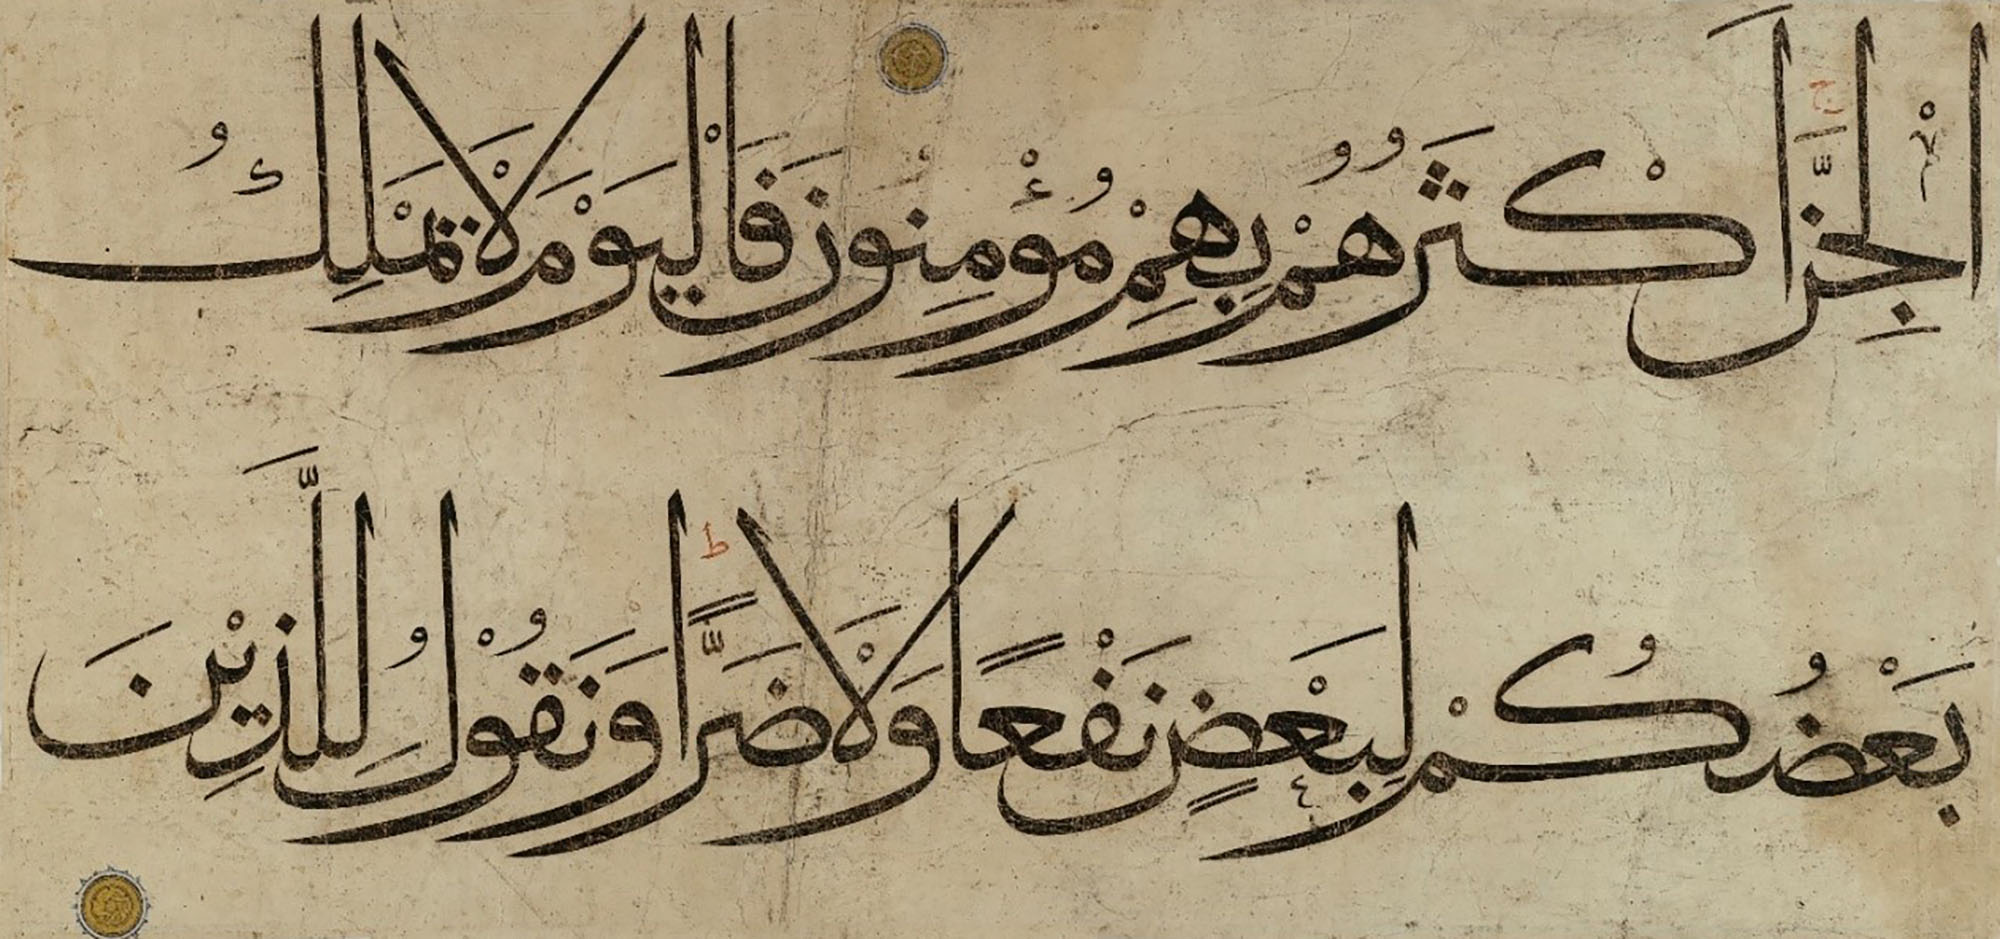 الْجِنَّ ج أَكْثَرُهُمْ بِهِمْ مُؤْمِنُونَ فَالْيَوْمَ لَا يَمْلِكُ
بَعْضُكُمْ لِبَعْضٍ نَفْعًا وَلَا ضَرًّا ط وَنَقُولُ لِلَّذِينَ